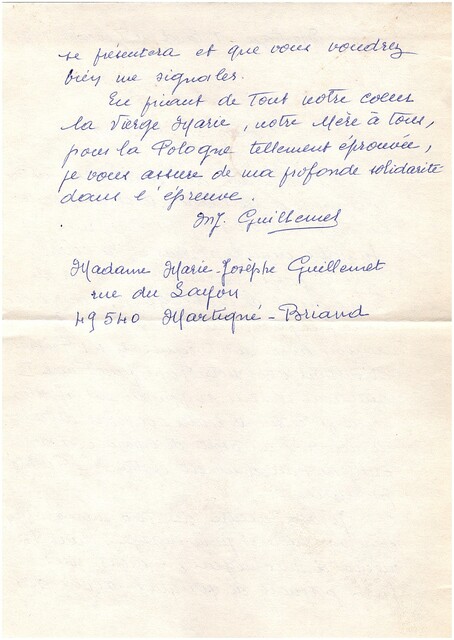 se présentera et que vous voudrez
bien me signaler.
En priant de tout notre coeur
la Vierge Marie, notre Mère à tous,
pour la Pologne tellement éprouvée,
je vous assure de ma profonde solidarité
dans l'épreuve.
MJ. Guillemet
Madame Marie-Josèphe Guillemet
rue du Layon
49540 Martigné-Briand